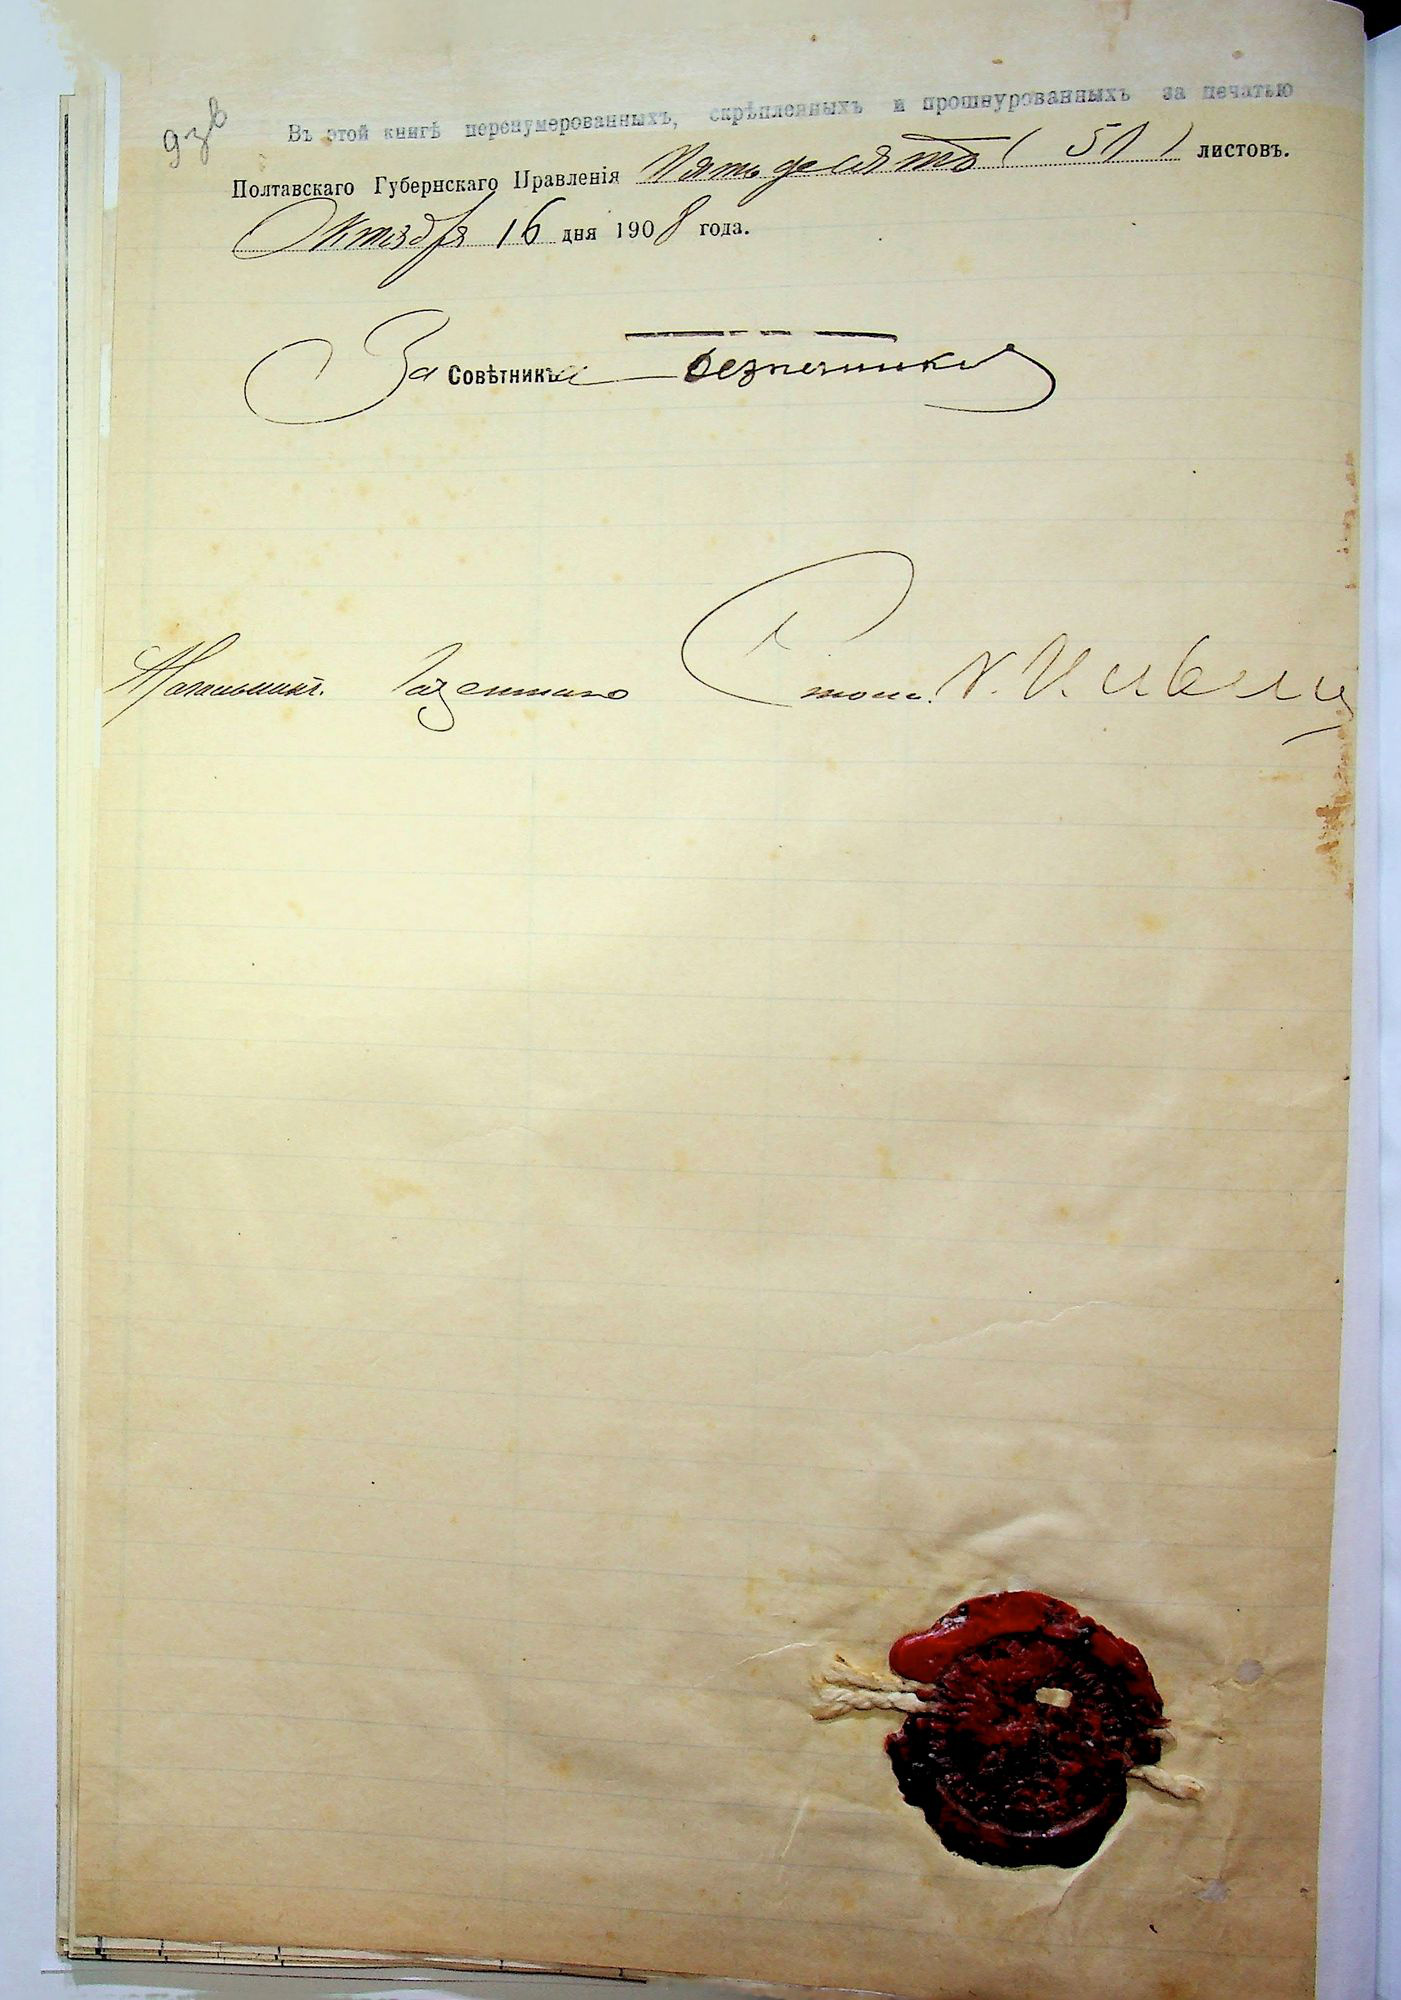 93в
Въ этой книгѣ перенумерованныхъ, скрѣпленныхъ и прошнурованныхъ за печатью
Полтавскаго Губернскаго Правленія Пятьдесятъ ( 51 ) листовъ.
Октября 16 дня 1908 года.
За Совѣтника
Стол.